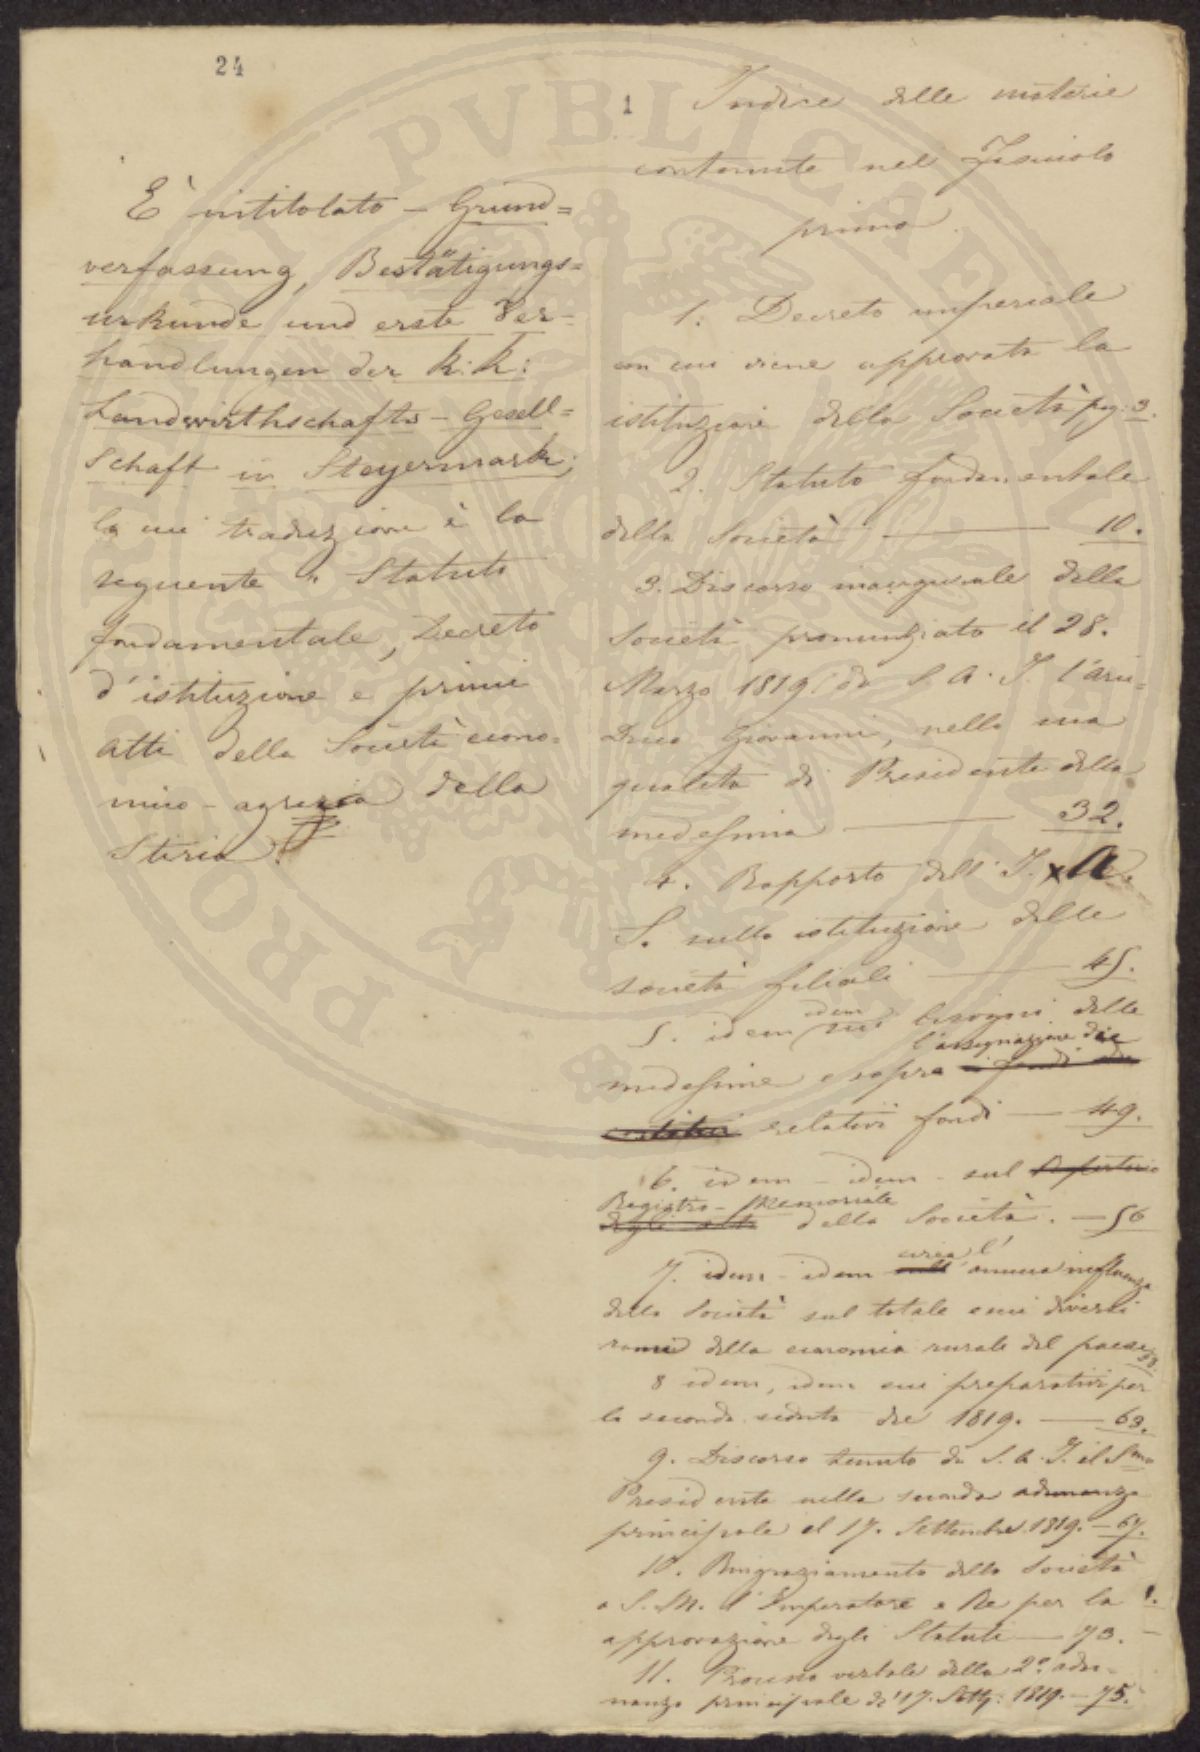 24
È intitolato – Grund=
verfassung, Bestätigungs=
urkunde und erste Ver=
handlungen der k: k:
Landwirthschafts – Gesell=
schaft in Steyermark;
la cui traduzione è la
seguente " Statuto
fondamentale, Decreto
d'istituzione e primi
atti della Società econo=
mico – agraria della
Stiria.
1
Indice delle materie
contenute nel fascicolo
primo.
1. Decreto imperiale
con cui viene approvata la
istituzione della Società pag: 3.
2. Statuto fondamentale
della Società — 10.
3. Discorso inaugurale della
Società pronunziato il 28.
Marzo 1819. da S. A. I. l'arci=
Duca Giovanni, nella sua
qualità di Presidente della
medesima — 32.
4. Rapporto dell' I. x A.
S. sulla istituzione delle
società filiali — 45.
5. idem idem sui bisogni delle
medesime e sopra l'assegnazione dei
relativi fondi — 49.
6. idem – idem – sul
Registro – Memoriale
della Società. — 56
7. idem – idem circa l' annua influenza
della Società sul totale e sui diversi
rami della economia rurale del paese 58.
8 idem, idem sui preparativi per
la seconda seduta del 1819. — 63.
9. Discorso tenuto da S. A. I. il Smo
Presidente nella seconda adunanza
principale il 17. Settembre 1819. — 67.
10. Ringraziamento della Società
a S. M. l'Imperatore e Re per la
approvazione degli Statuti — 73.
11. Processo verbale della 2a adu=
nanza principale de' 17. Sett: 1819. — 75.
PROVINCIALI PVBLICA